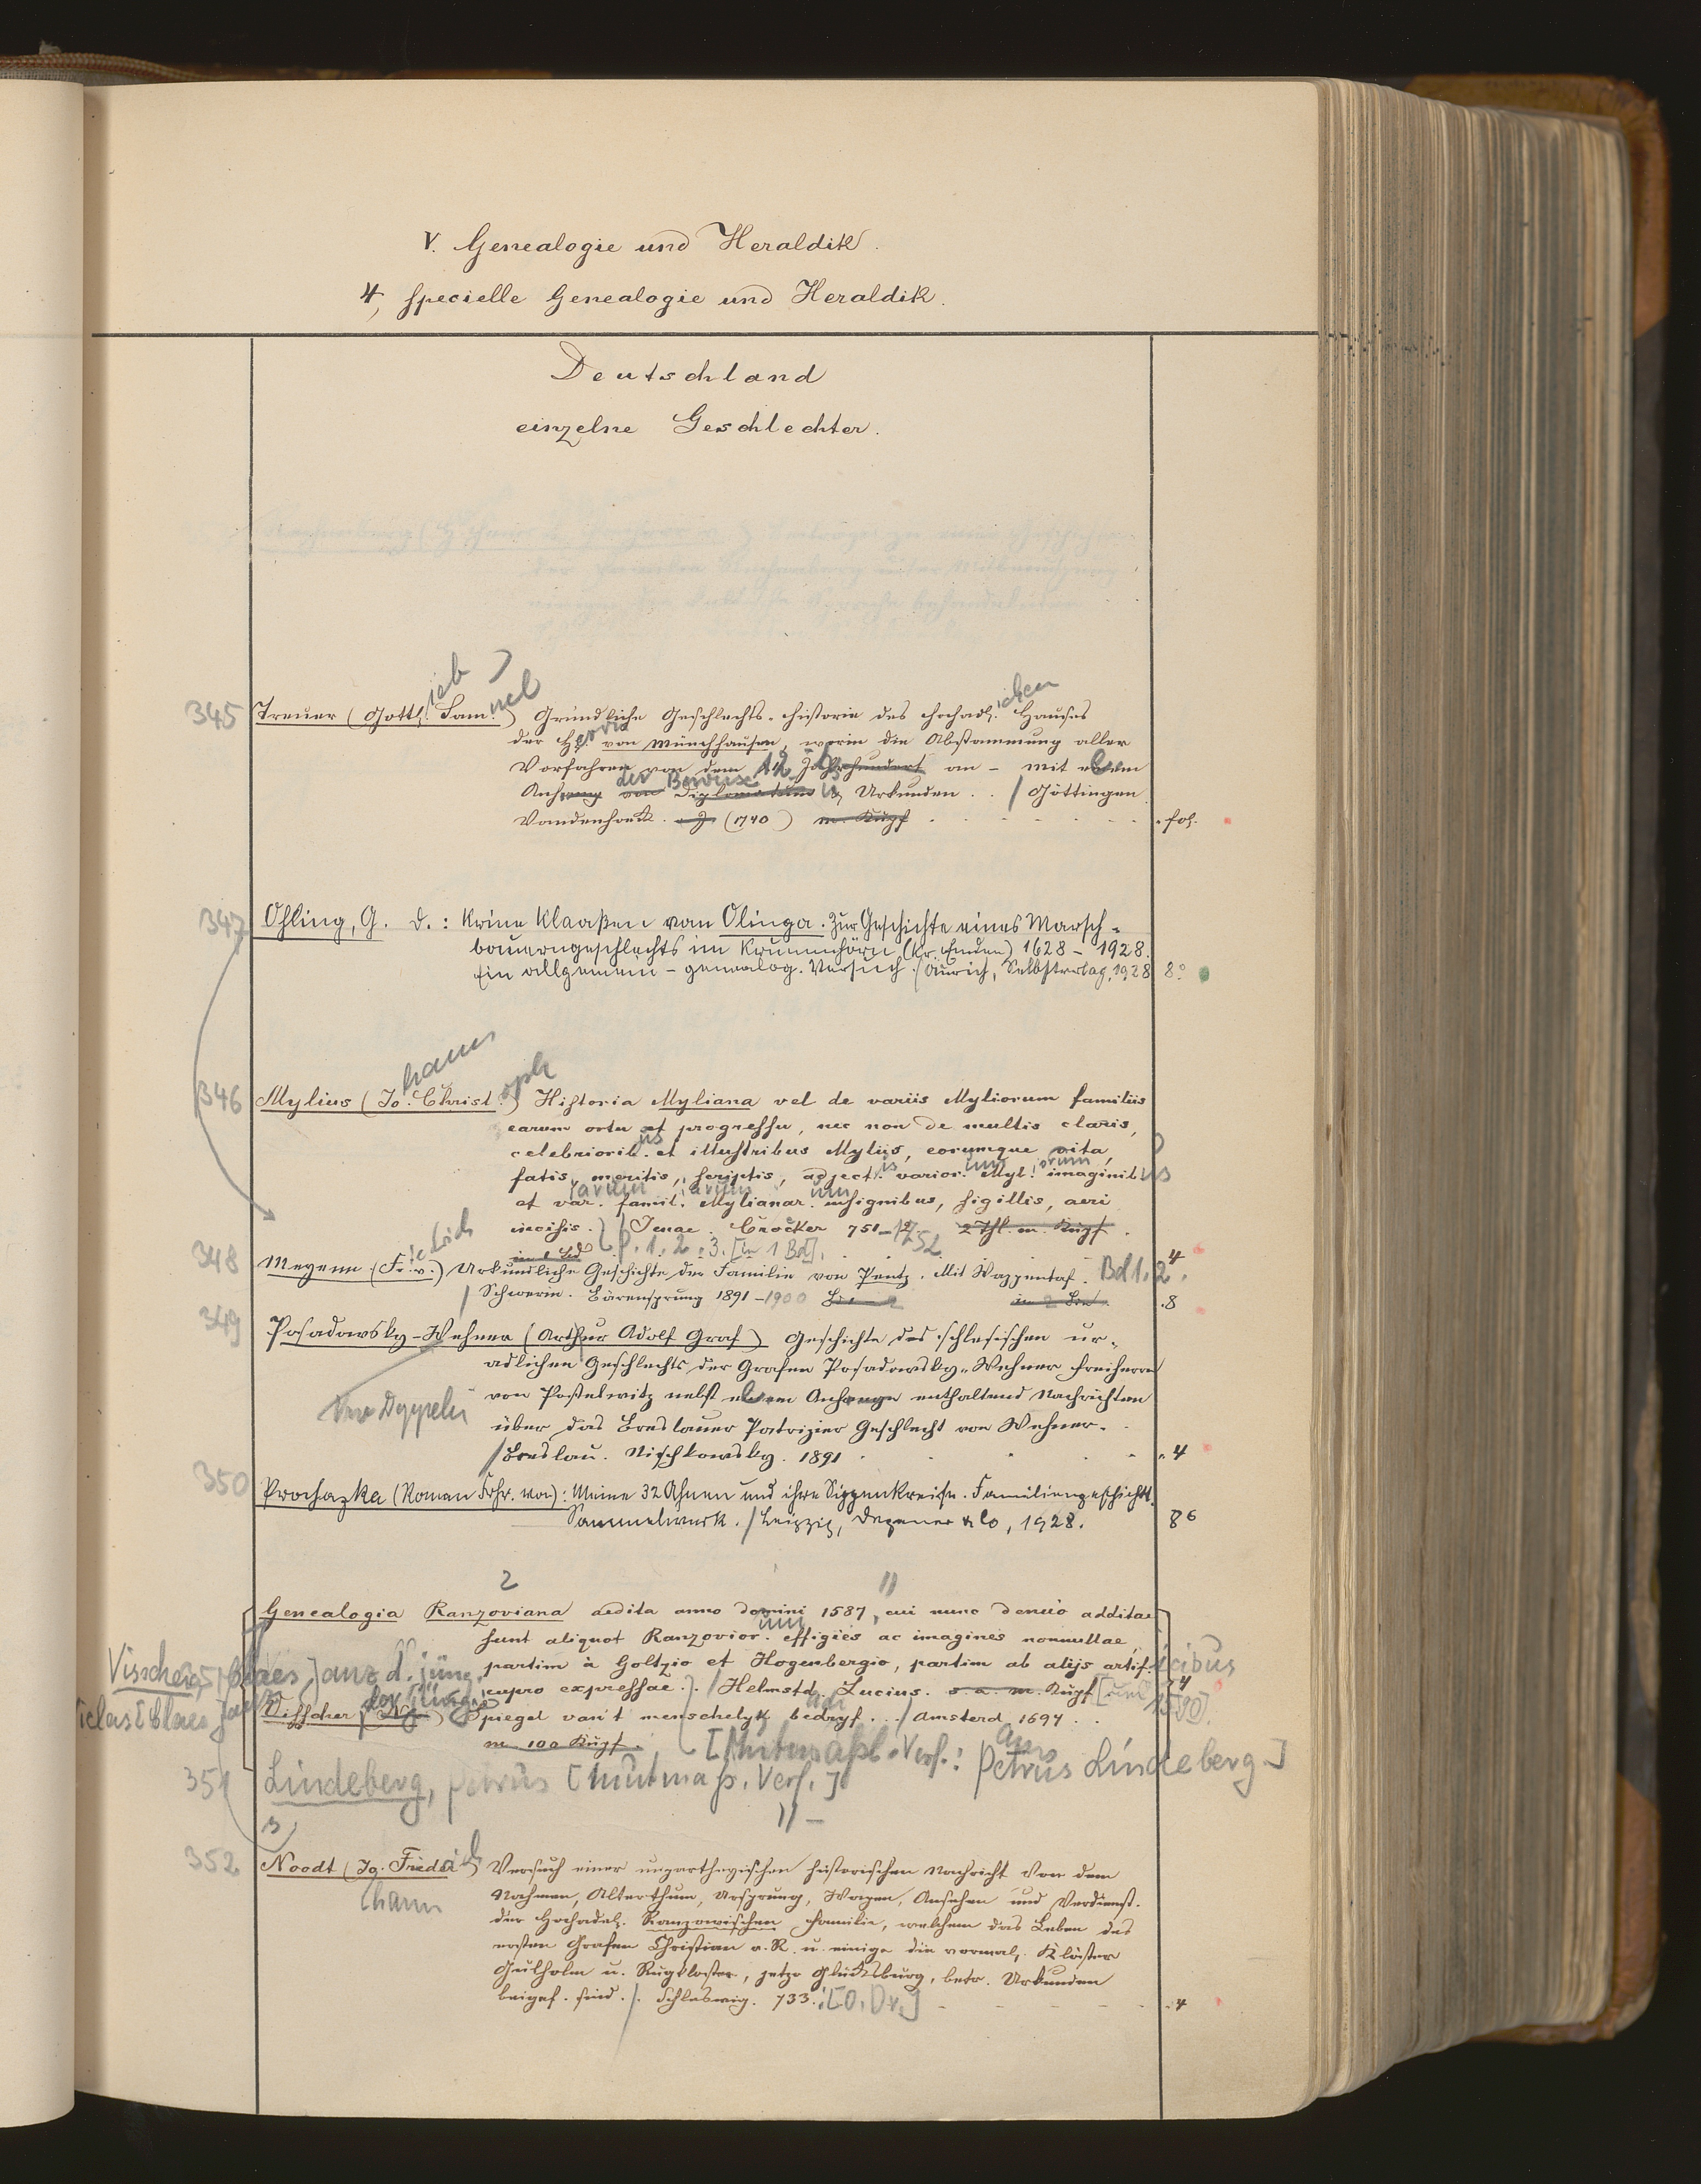 V. Genealogie und Heraldik.
4, specielle Genealogie und Heraldik.
Deutschland
einzelne Geschlechter.
345 Treuer (Gottl.ieb Sam.uel) Gründliche Geschlechts-Historie des Hochadl.ichen Hauses
der H.errn von Münchhausen, worin die Abstammung aller
Vorfahren von dem 12. Jahrhundert an - mit
Anhang von Diplomatum der Beweise u. Urkunden . . / Göttingen
Vandenhoeck. (1740) m. Kupf . fol.
347 Ohling, G. D.: Krine Klaaßen van Olinga. Zur Geschichte eines Marsch-
bauerngeschlechts im Krummhörn (Kr. Emden) 1628 - 1928.
Ein allgemein-genealog. Versuch. / Aurich, Selbstverlag, 1928 8°
346 Mylius (Jo.hann Christ.oph) Historia Myliana vel de variis Myliorum familiis
earum ortu et progressu, nec non de multis claris,
celebriorib.us et illustribus Myliis, eorumque vita,
fatis, meritis, scriptis, adject.is varior.um Myl.iorum imaginibus
et var.iarum famil.iarum Mylianar.um insignibus, sigillis, aeri
incisis.) / Jenae. Croeker 751-1752 2 Thl. m. Kupf.
P. 1. 2. 3. [in 1 Bd]. 4
348 Meyenn (Fr.iedrich v.) Urkundliche Geschichte der Familie von Pentz. Mit Wappentaf. Bd 1, 2.
/ Schwerin. Bärensprung 1891-1900 in 2 Bd. 8
349 Posadowsky-Wehner (Arthur Adolf Graf) Geschichte des schlesischen ur-
adlichen Geschlechts der Grafen Posadowsky-Wehner Freiherrn
von Postelwitz nebst einem Anhange enthaltend Nachrichten
über das Breslauer Patrizier Geschlecht von Wehner.
/ Breslau. Nischkowsky. 1891 4
350 Prochazka (Roman Frhr. von): Meine 32 Ahnen und ihre Sippenkreise. Familiengeschichtl.
Sammelwerk. / Leipzig, Degener & Co, 1928. 8°
2 //
Genealogia Ranzoviana aedita anno domini 1587, cui nunc denuo additae
sunt aliquot Ranzovior.um effigies ac imagines nonnullae,
partim à Goltzio et Hogenbergio, partim ab alijs artif.icibus
cupro expressae.) / Helmstd. Lucius. s. a. m. Kupf [um 1590]. 4
Visscher (N.) Spiegel van't menschelyk bedryf . . / Amsterd 1694 . .
m. 100 Kupf.
[Mutmaßl. Verf.: Petrus Lindeberg.]
351 Lindeberg, Petrus [mutmaß. Verf.]
// -
352 Noodt (Jo.hann Friedrich) Versuch einer unpartheyischen historischen Nachricht von dem
Nahmen, Alterthum, Ursprung, Wapen, Ansehen und Verdienst.
der Hochadel. Ranzowischen Familie, welchem das Leben des
ersten Grafen Christian v. R. u. einige die vormal. Klöster
Gulholm u. Rugkloster, jetzo Glücksburg, betr. Urkunden
beigef. sind. / Schleswig. 733. [O. Dr.] 4